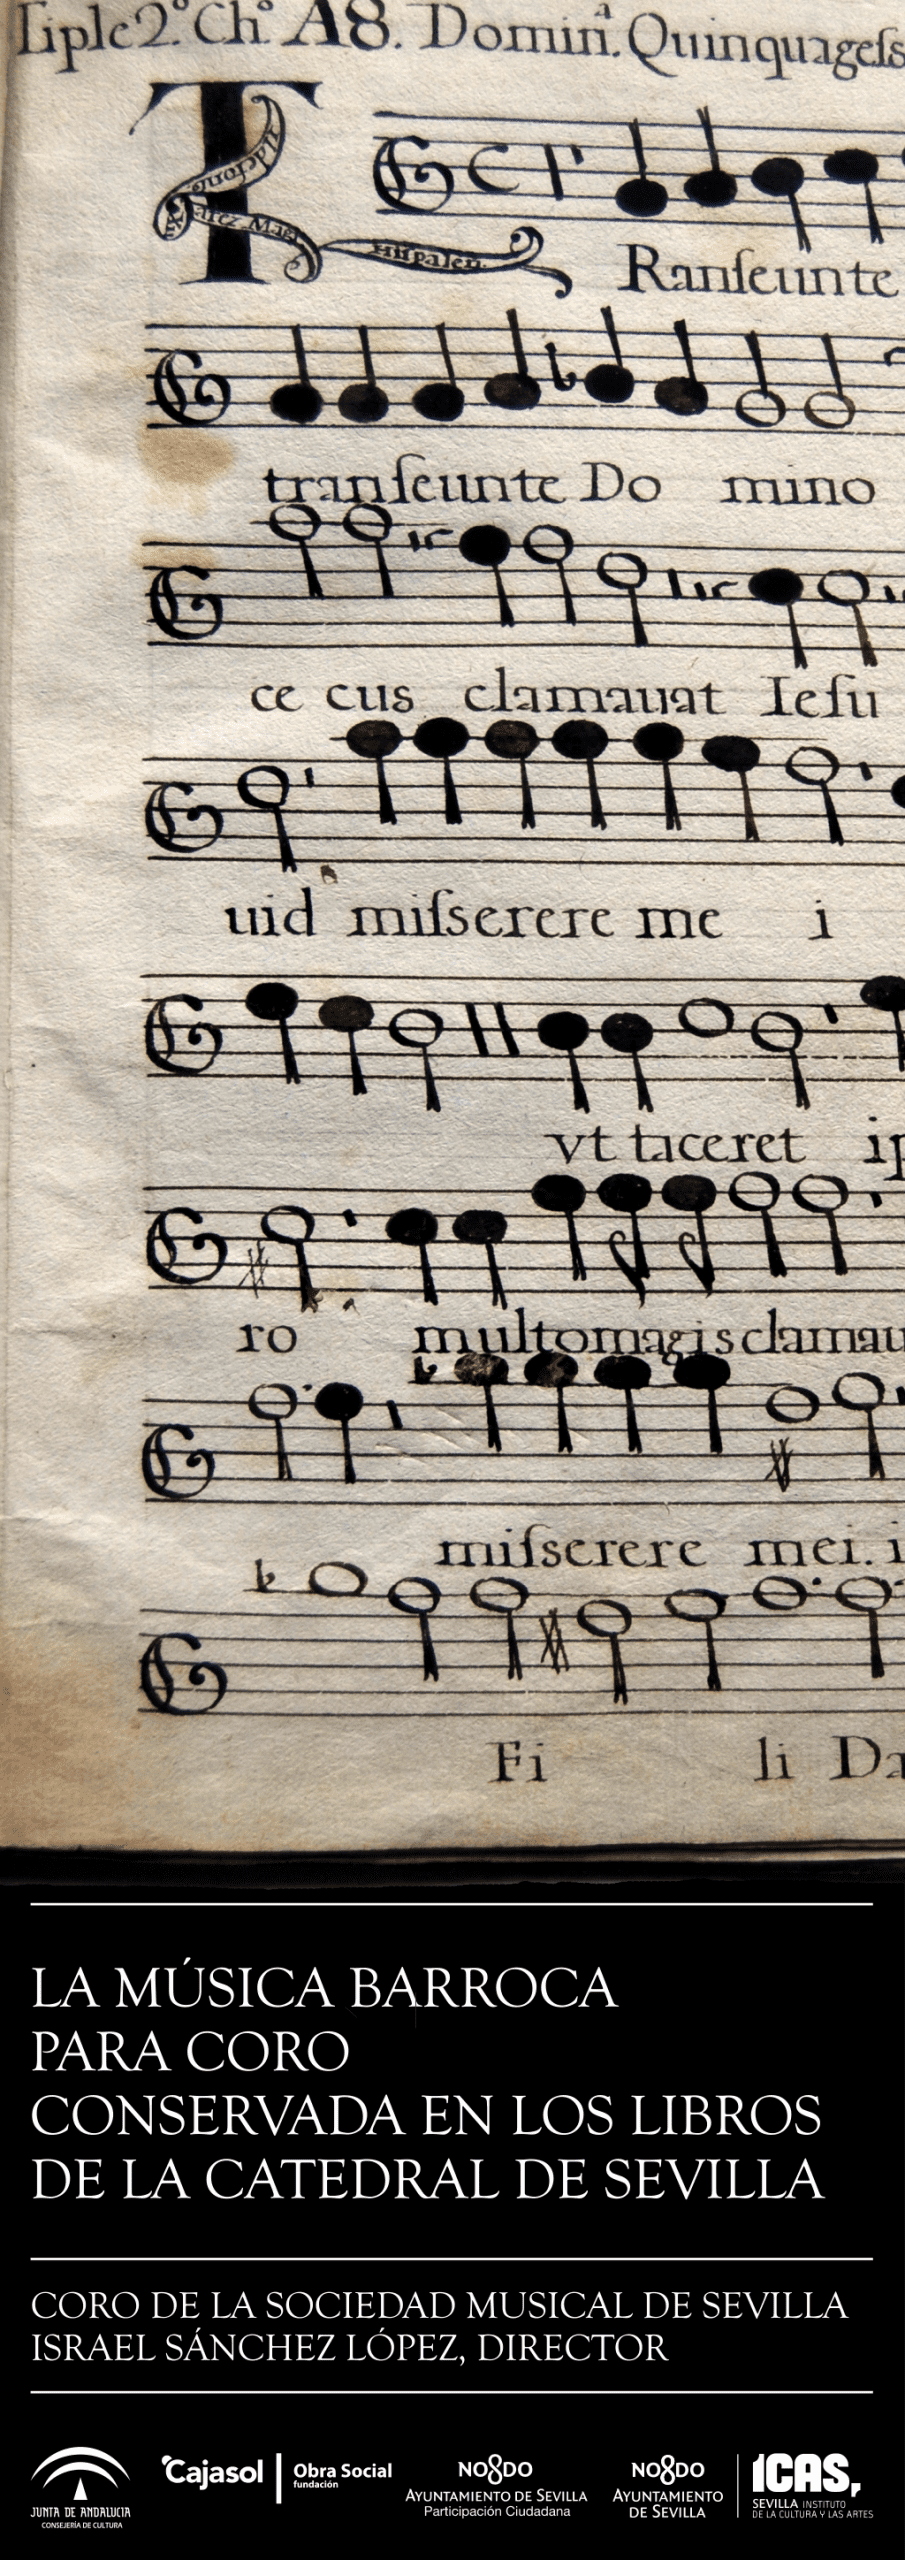 Tiple 2.º Ch.º A8. Domin.ª Quinquageſs
T
Ildefons
Xuarez Mag
Hispalen.
Ranſeunte
tranſeunte Do mino
ce cus clamauat Ieſu
uid miſserere me i
vt taceret ip
ro multo magis clamau
miſserere mei. i
Fi li Da
LA MÚSICA BARROCA
PARA CORO
CONSERVADA EN LOS LIBROS
DE LA CATEDRAL DE SEVILLA
CORO DE LA SOCIEDAD MUSICAL DE SEVILLA
ISRAEL SÁNCHEZ LÓPEZ, DIRECTOR
JUNTA DE ANDALUCIA
CONSEJERÍA DE CULTURA
Cajasol
Obra Social
fundación
NO8DO
AYUNTAMIENTO DE SEVILLA
Participación Ciudadana
NO8DO
AYUNTAMIENTO
DE SEVILLA
ICAS,
SEVILLA INSTITUTO
DE LA CULTURA Y LAS ARTES